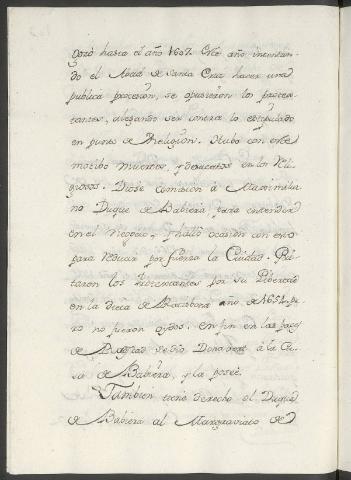 gozó hasta el año 1607. Este año intentan-
do el Abad de Santa Cruz hacer una
publica procesion, se opusieron los protes-
tantes, alegando ser contra lo estipulado
en punto de Religion. Hubo con este
motibo muertes, y desacatos en los Reli-
giosos. Diose comision à Maximilia-
no Duque de Babiera para entender
en el Negocio. Y halló ocasion con esto
para reducir por fuerza la Ciudad.
taron los Protestantes por su Libertad
en la dieta de Ratisbona año de 1654. pe-
ro no fueron oydos. En fin en las pazes
de se dio Donavert à la Ca-
sa de Babiera, y la poseé.
Tambien tiene derecho el Duque
de Babiera al Margraviato de